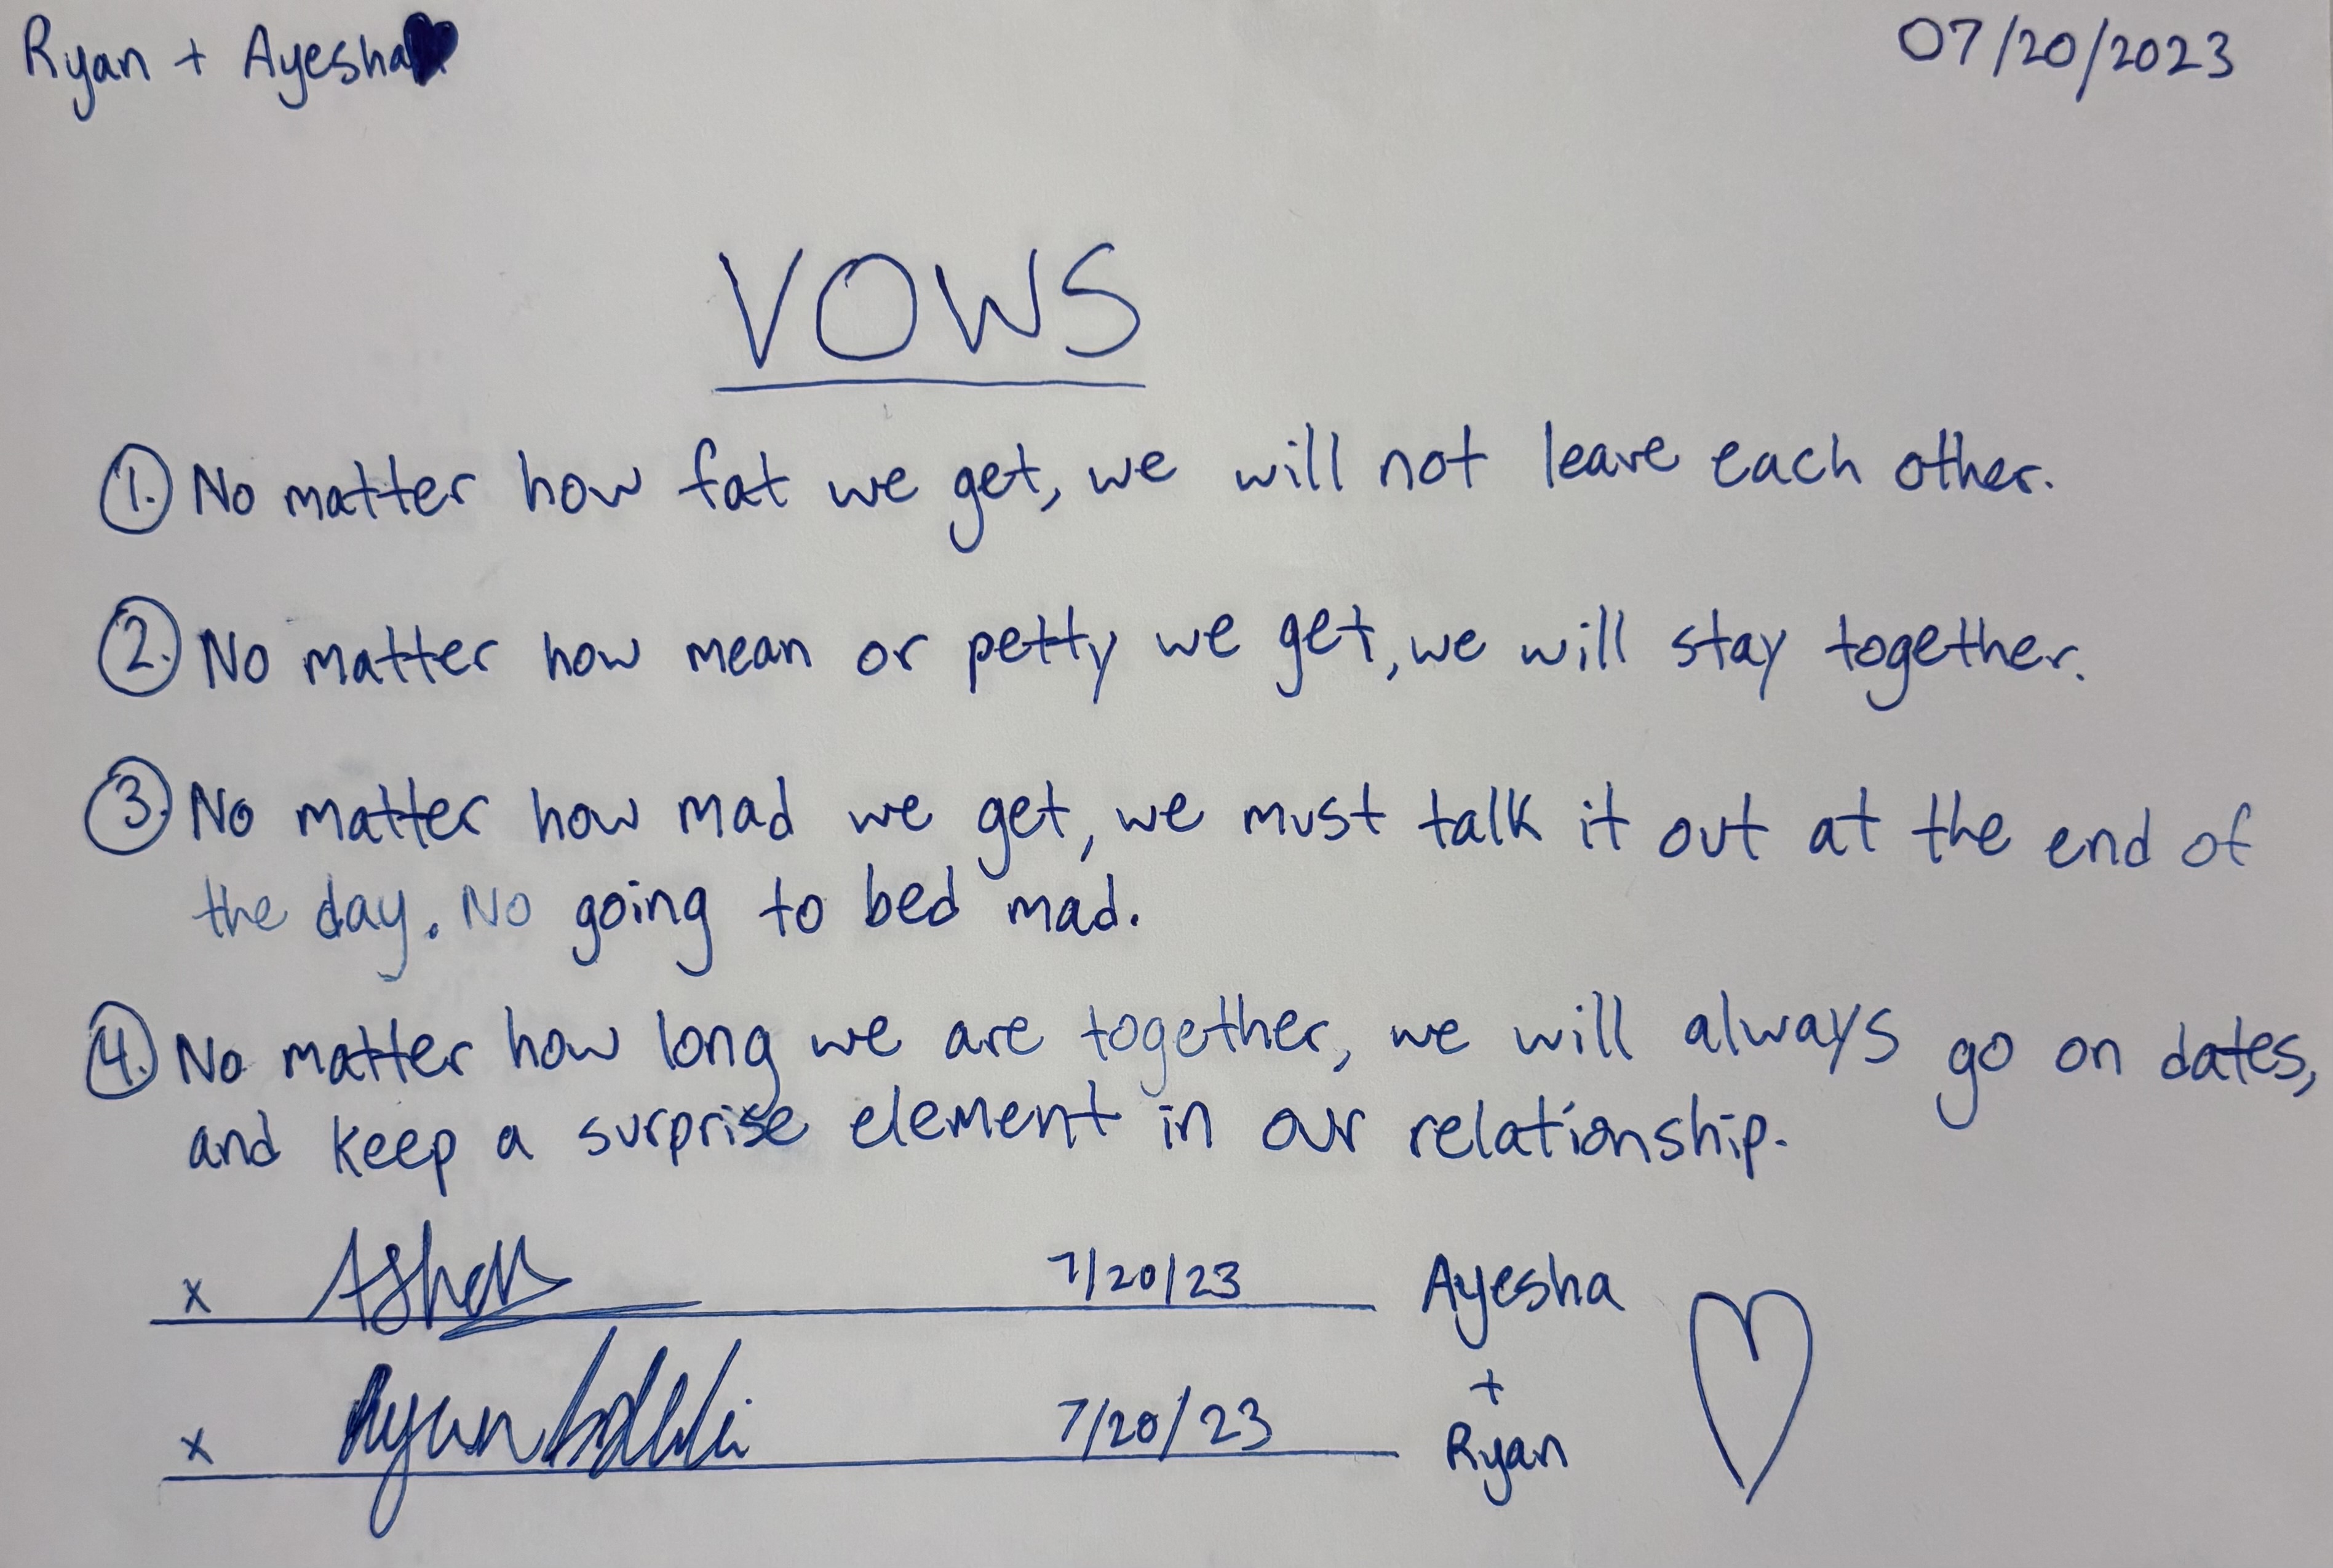 Ryan + Ayesha
07/20/2023
VOWS
1. No matter how fat we get, we will not leave each other.
2. No matter how mean or petty we get, we will stay together.
3. No matter how mad we get, we must talk it out at the end of
the day. No going to bed mad.
4. No matter how long we are together, we will always go on dates,
and keep a surprise element in our relationship.
x 7/20/23 Ayesha
+
x Ryan 7/20/23 Ryan